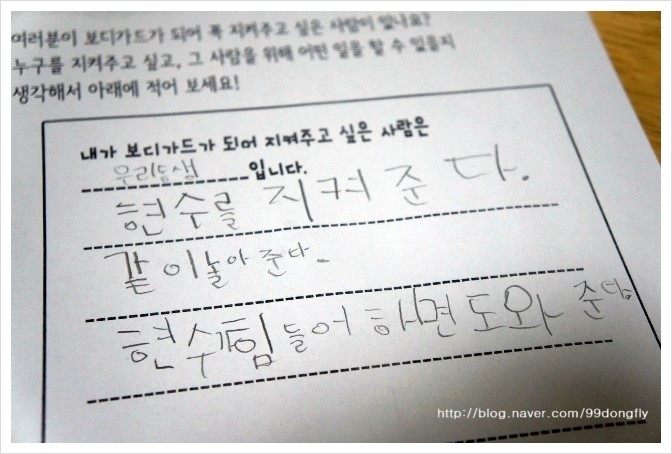 여러분이 보디가드가 되어 꼭 지켜주고 싶은 사람이 있나요?
누구를 지켜주고 싶고, 그 사람을 위해 어떤 일을 할 수 있을지
생각해서 아래에 적어 보세요!
내가 보디가드가 되어 지켜주고 싶은 사람은
우리동생 입니다.
현수를 지켜 준다.
같이 놀아 준다.
현수가 힘들어 하면 도와 준다.
http://blog.naver.com/99dongfly